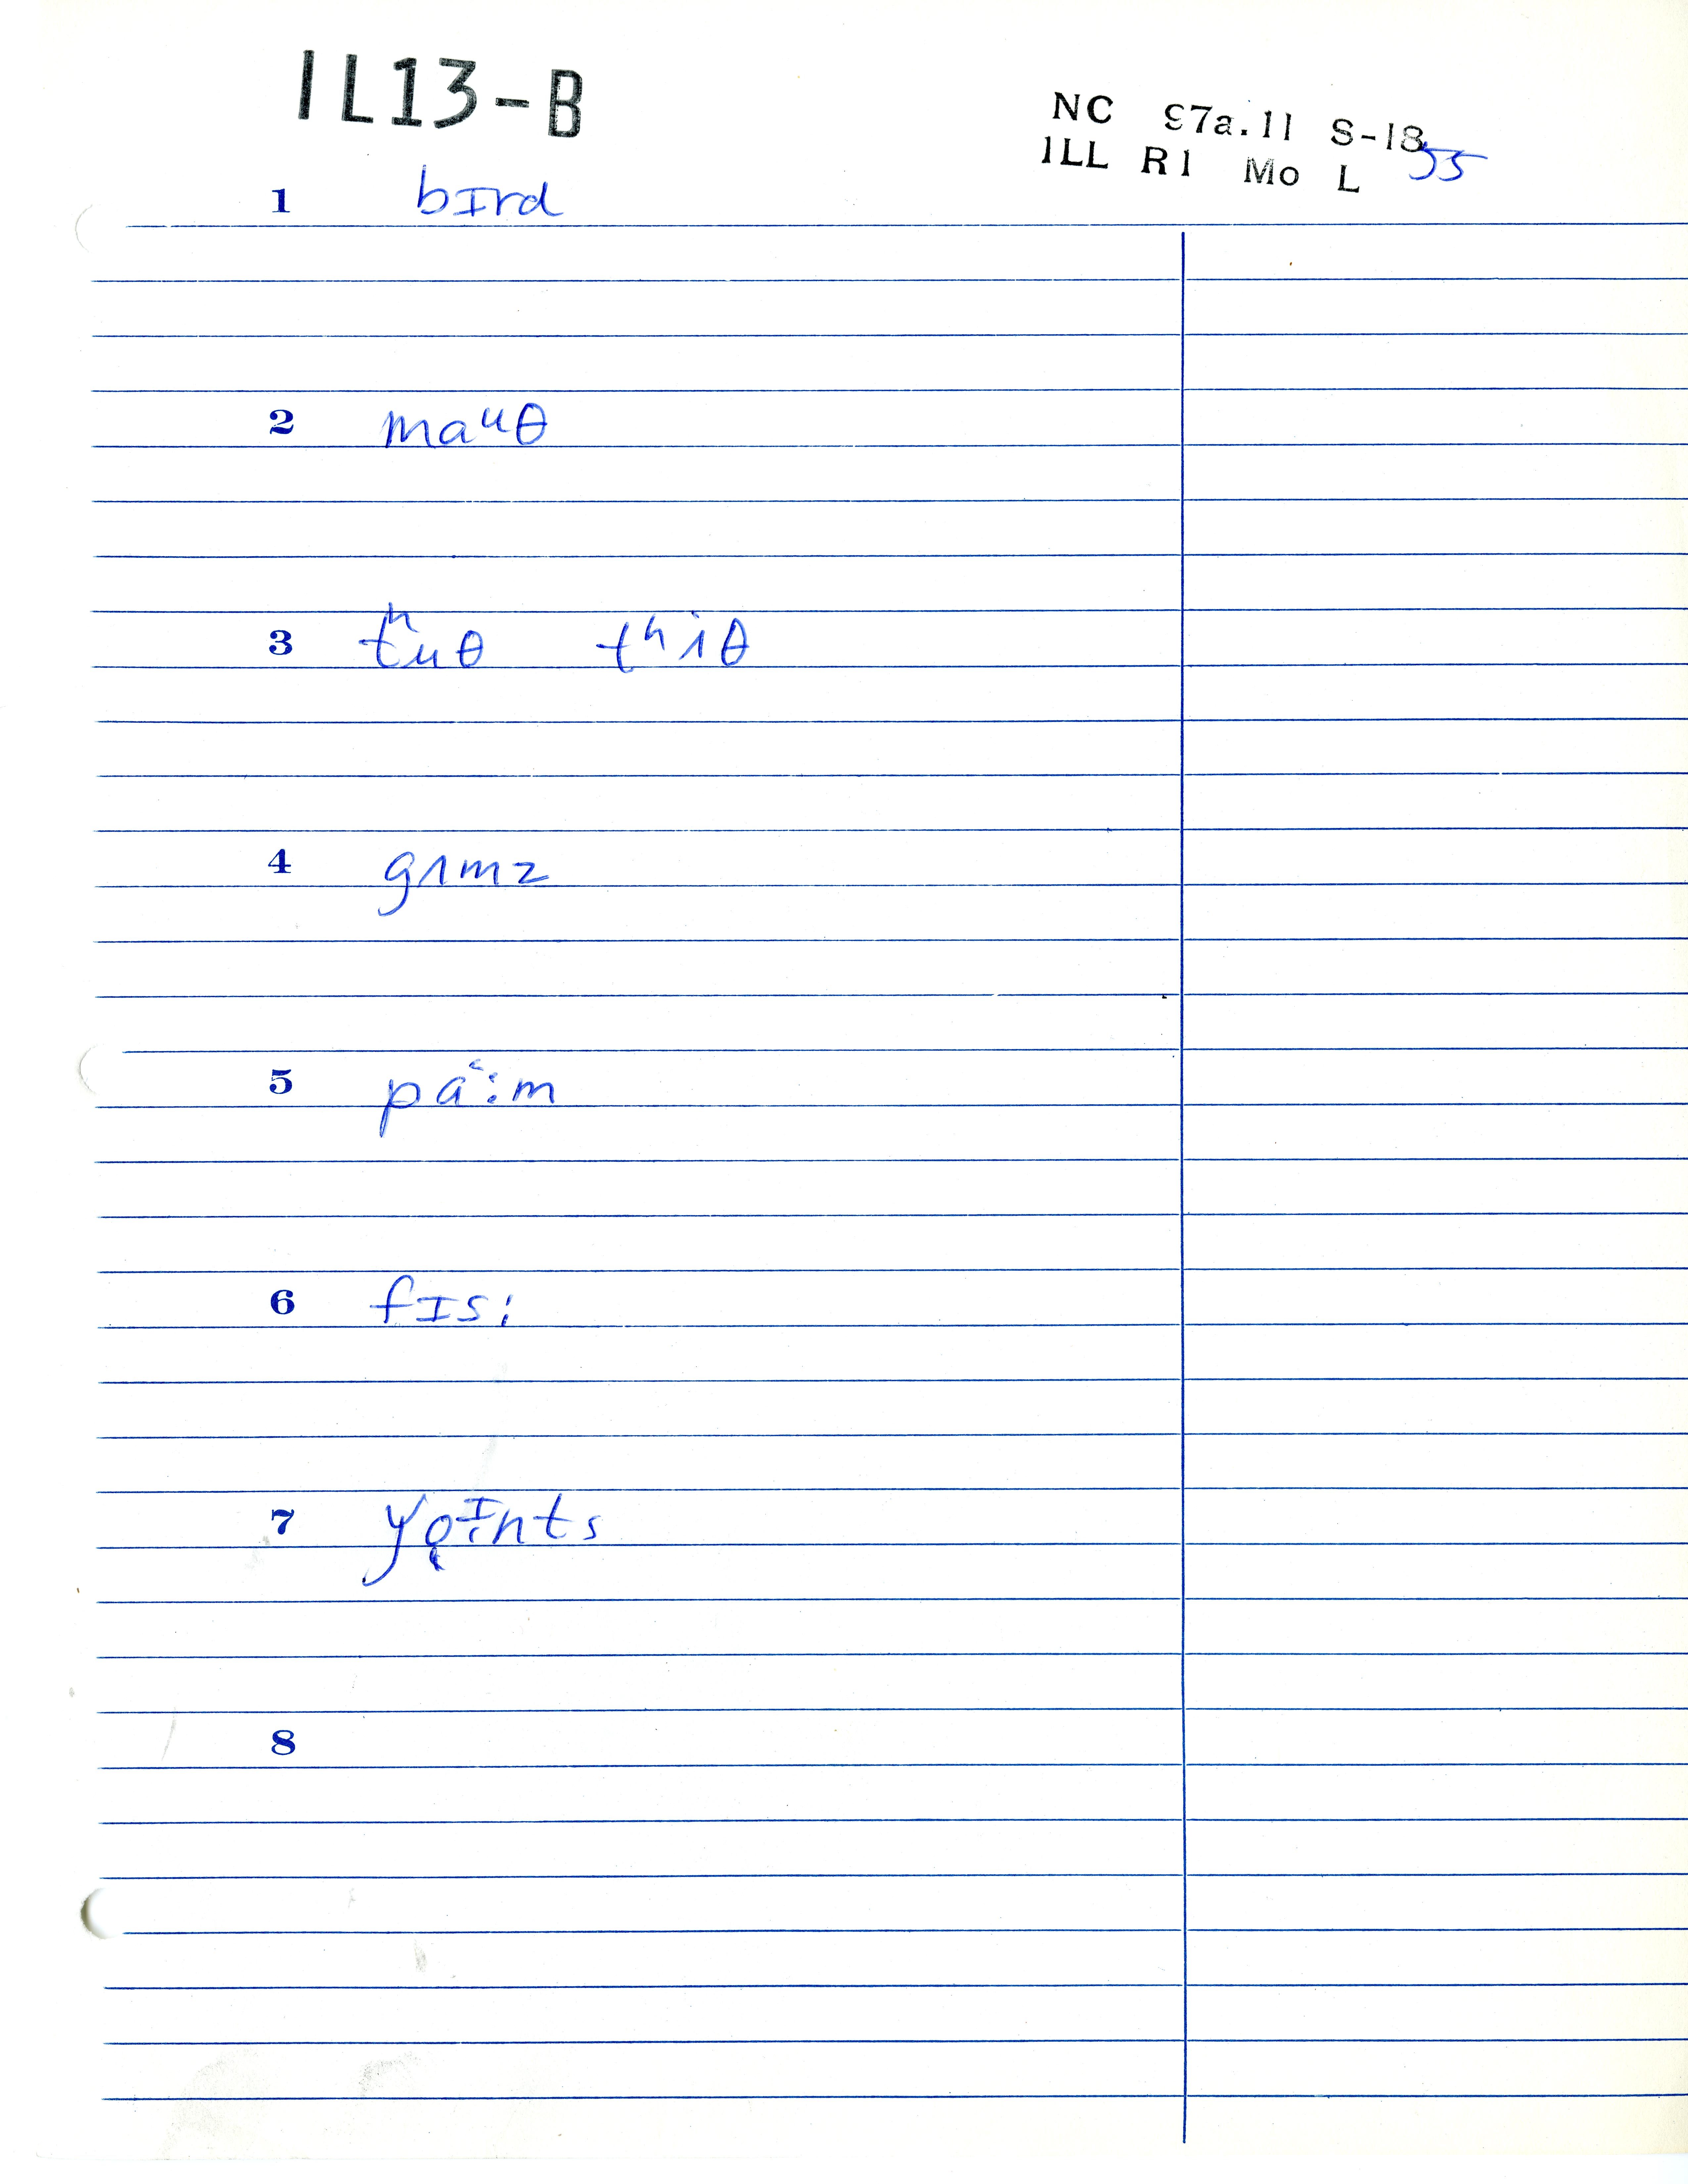 IL13-B
NC 97a.11 S-18 55
ILL R1 Mo L
1 bɪrd
2 maᵘθ
3 tʰuθ tʰiθ
4 gʌmz
5 pa˂:m
6 fɪs:
7 yo̜ᶦnts
8